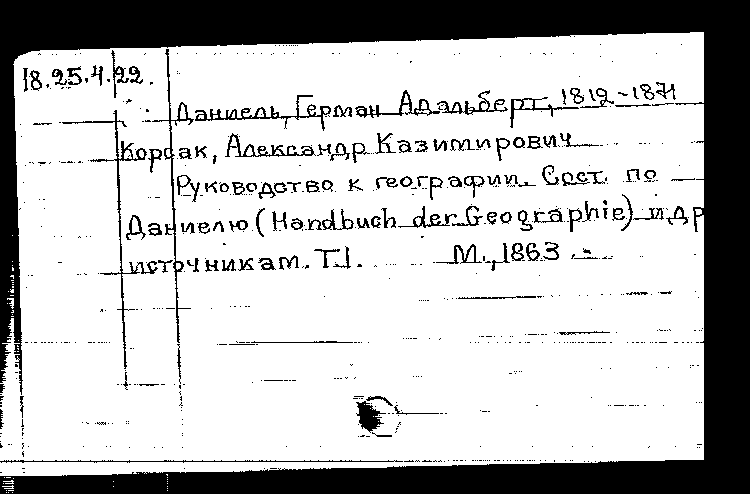 18.25.4.22.
Даниель, Герман Адальберт, 1812-1871
Корсак, Александр Казимирович
Руководство к географии. Сост. по
Даниелю (Handbuch der Geographie) и др
источникам. Т.I. М., 1863.-